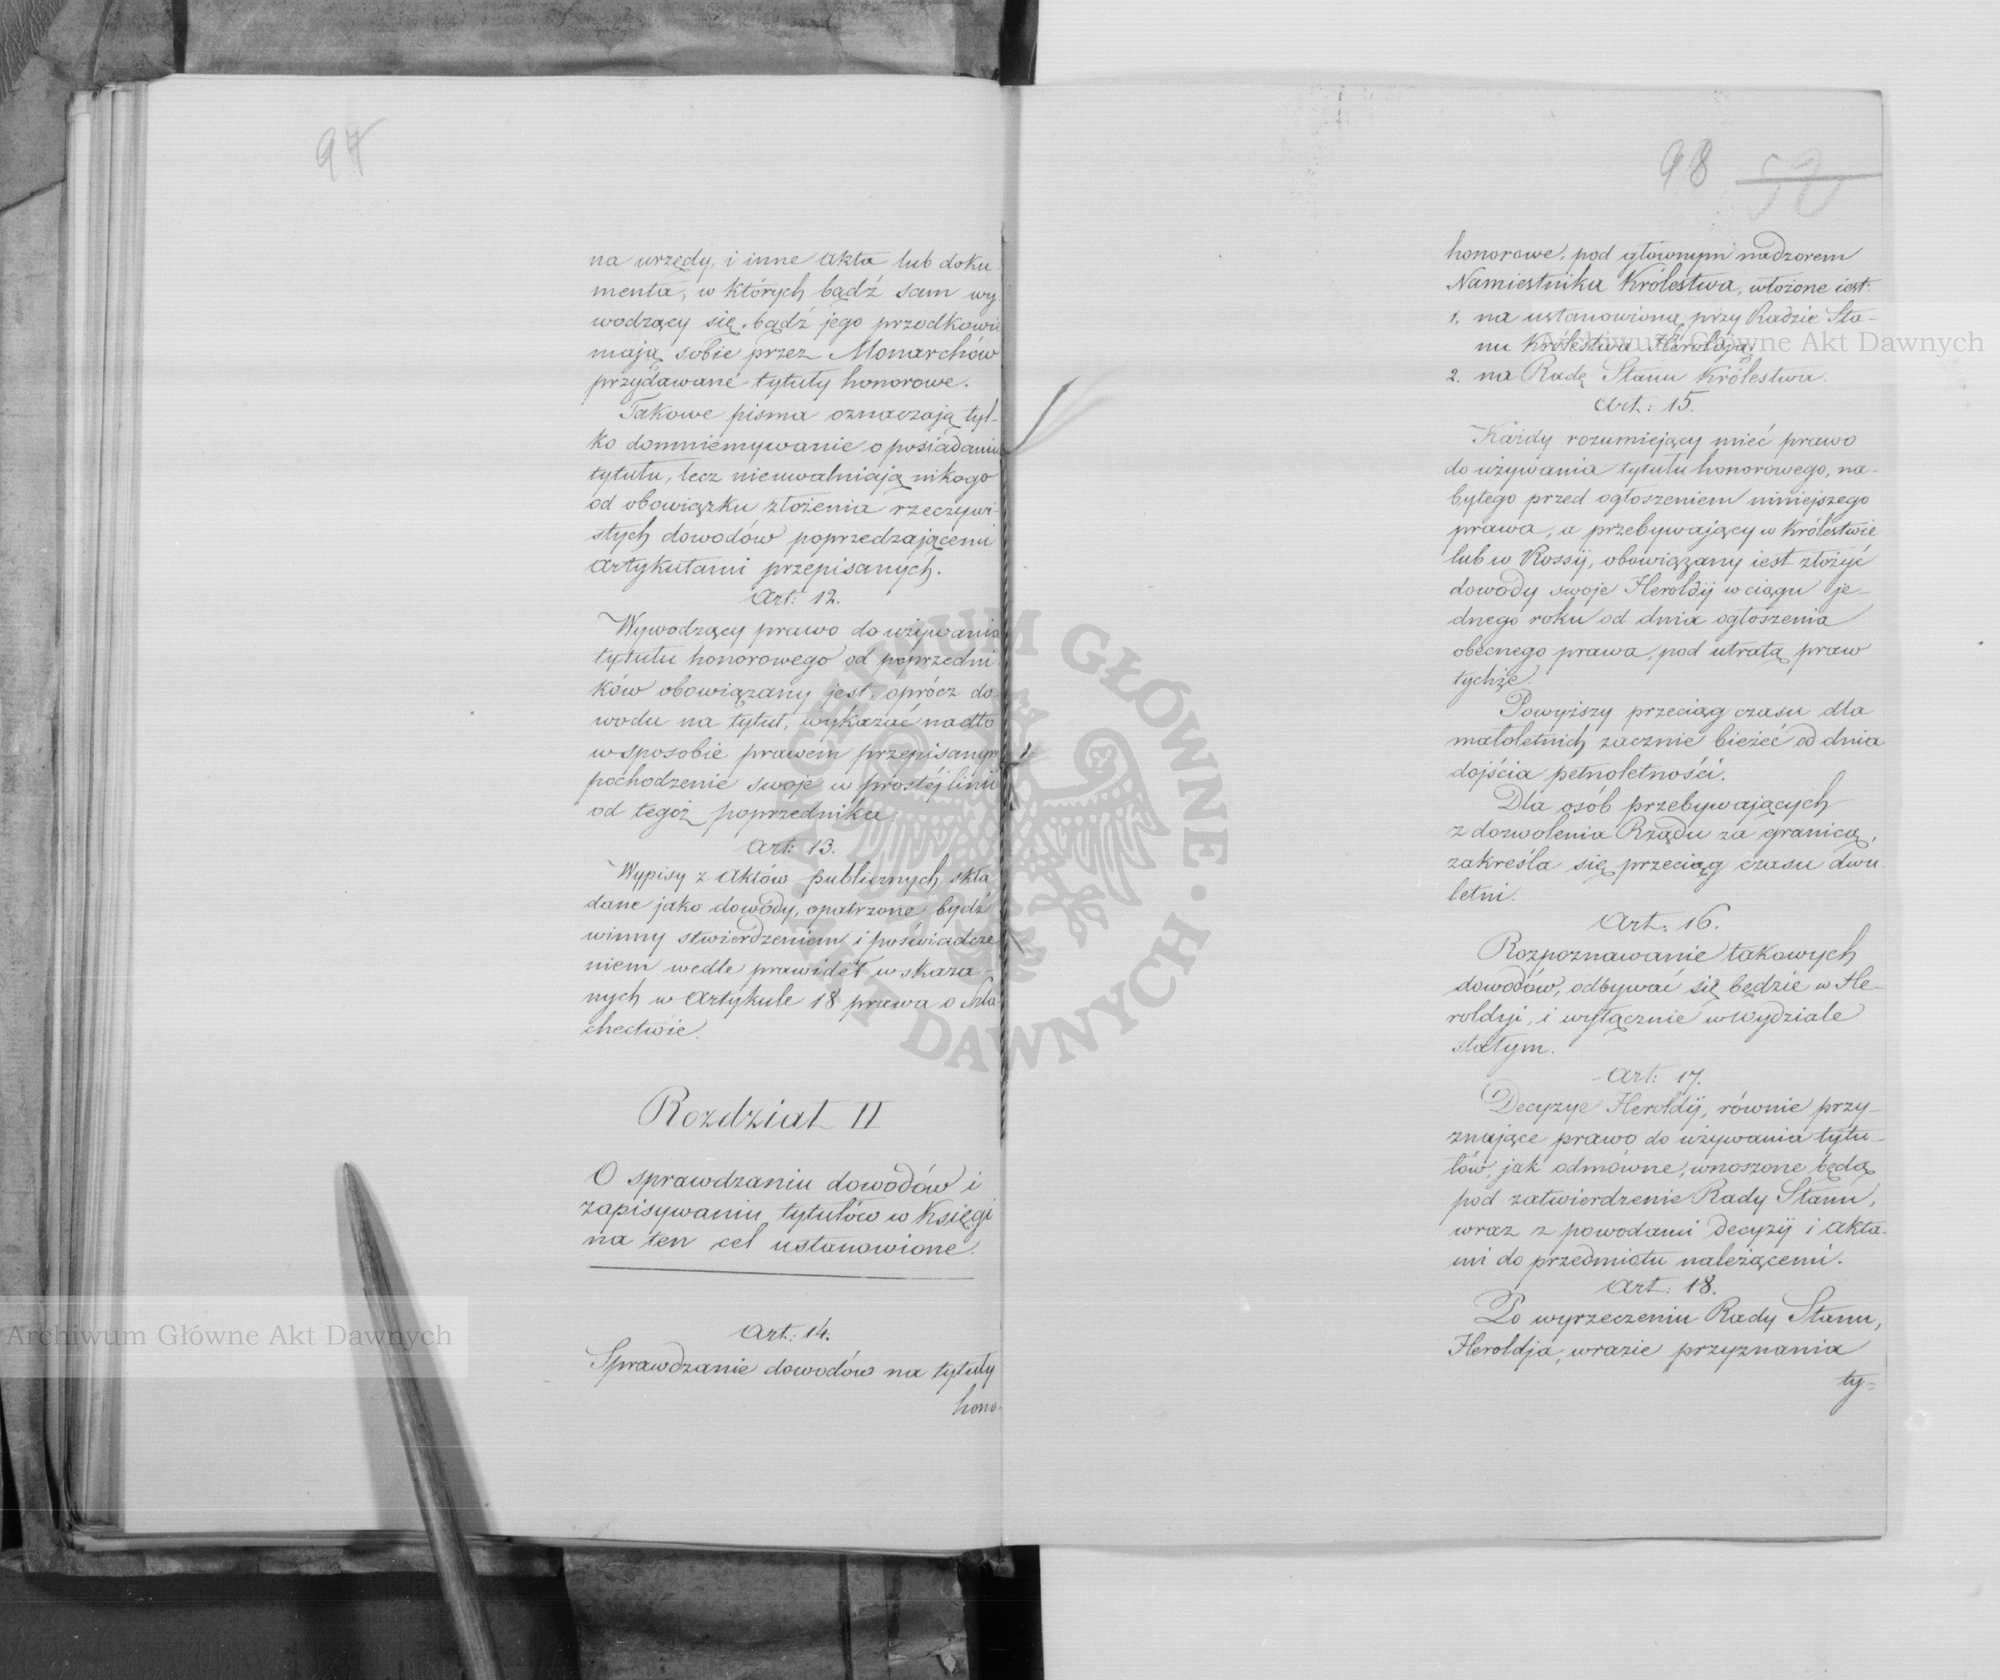 97
na urzędy, i inne akta lub doku
menta, w których bądź sam wy
wodzący się, bądź jego przodkowie
mają sobie przez Monarchów
przydawane tytuły honorowe.
Takowe pisma oznaczają tyl-
ko domniemywanie o posiadaniu
tytułu, lecz nieuwalniają nikogo
od obowiązku złożenia rzeczywi-
stych dowodów poprzedzającemi
artykułami przepisanych.
Art: 12.
Wywodzący prawo do używania
tytułu honorowego od poprzedni
ków obowiązany jest, oprócz do
wodu na tytuł, wykazać nadto
w sposobie prawem przepisanym
pochodzenie swoje w prostéj linii
od tegoż poprzednika.
Art: 13.
Wypisy z aktów publicznych skła
dane jako dowody, opatrzone bydź
winny stwierdzeniem i poświadcze
niem wedle prawideł wskaza-
nych w artykule 18 prawa o Szla
chectwie.
Rozdział II
O sprawdzaniu dowodów i
zapisywaniu tytułów w Księgi
na ten cel ustanowione.
Art: 14.
Sprawdzanie dowodów na tytuły
hono-
98 50
honorowe, pod głównym nadzorem
Namiestnika Królestwa, włożone iest:
1. na ustanowioną przy Radzie Sta-
nu Królestwa Heroldją;
2. na Radę Stanu Królestwa.
Art: 15.
Każdy rozumiejący mieć prawo
do używania tytułu honorowego, na-
bytego przed ogłoszeniem niniejszego
prawa, a przebywający w Królestwie
lub w Rossyi, obowiązany iest złożyć
dowody swoje Heroldij w ciągu je-
dnego roku od dnia ogłoszenia
obecnego prawa, pod utratą praw
tychże.
Powyższy przeciąg czasu dla
małoletnich zacznie bieżeć od dnia
dojścia pełnoletności.
Dla osób przebywających
z dozwolenia Rządu za granicą,
zakreśla się przeciąg czasu dwu-
letni.
Art: 16.
Rozpoznawanie takowych
dowodów, odbywać się będzie w He-
roldyi, i wyłącznie w wydziale
stałym.
Art: 17.
Decyzye Heroldij, równie przy-
znające prawo do używania tytu-
łów, jak odmowne, wnoszone będą
pod zatwierdzenie Rady Stanu,
wraz z powodami decyzij i akta-
mi do przedmiotu należącemi.
Art: 18.
Po wyrzeczeniu Rady Stanu,
Heroldja, w razie przyznania
ty=
Archiwum Główne Akt Dawnych
Archiwum Główne Akt Dawnych
ARCHIWUM GŁÓWNE · AKT DAWNYCH ·